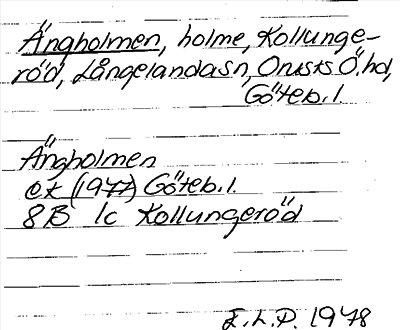 Ängholmen, holme, Kollunge-
röd, Långelandasn, Orusts Ö. hd,
Göteb. l.
Ängholmen
ek (1977) Göteb. l.
8B 1c Kollungeröd
E. L. P. 1978